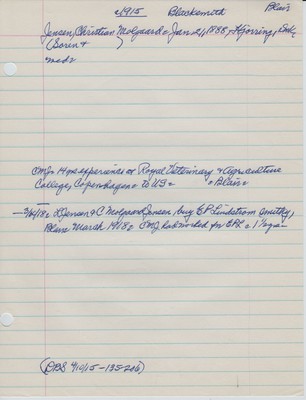 c1915 Blacksmith Blair
Jensen, Christian Molgaard - Jan. 21, 1888, Hjorring, Dnk,
(Soren + )
md:
CMJ: 14 yrs experience at Royal Veterinary & Agriculture
College, Copenhagen to US Blair
3/6/18: Jensen & C Molgaard Jensen, buy E P Lindstrom smithy,
Blair March 1918 CMJ has worked for EPL 1½ yrs -
(DBS 4/10/15-135-206)